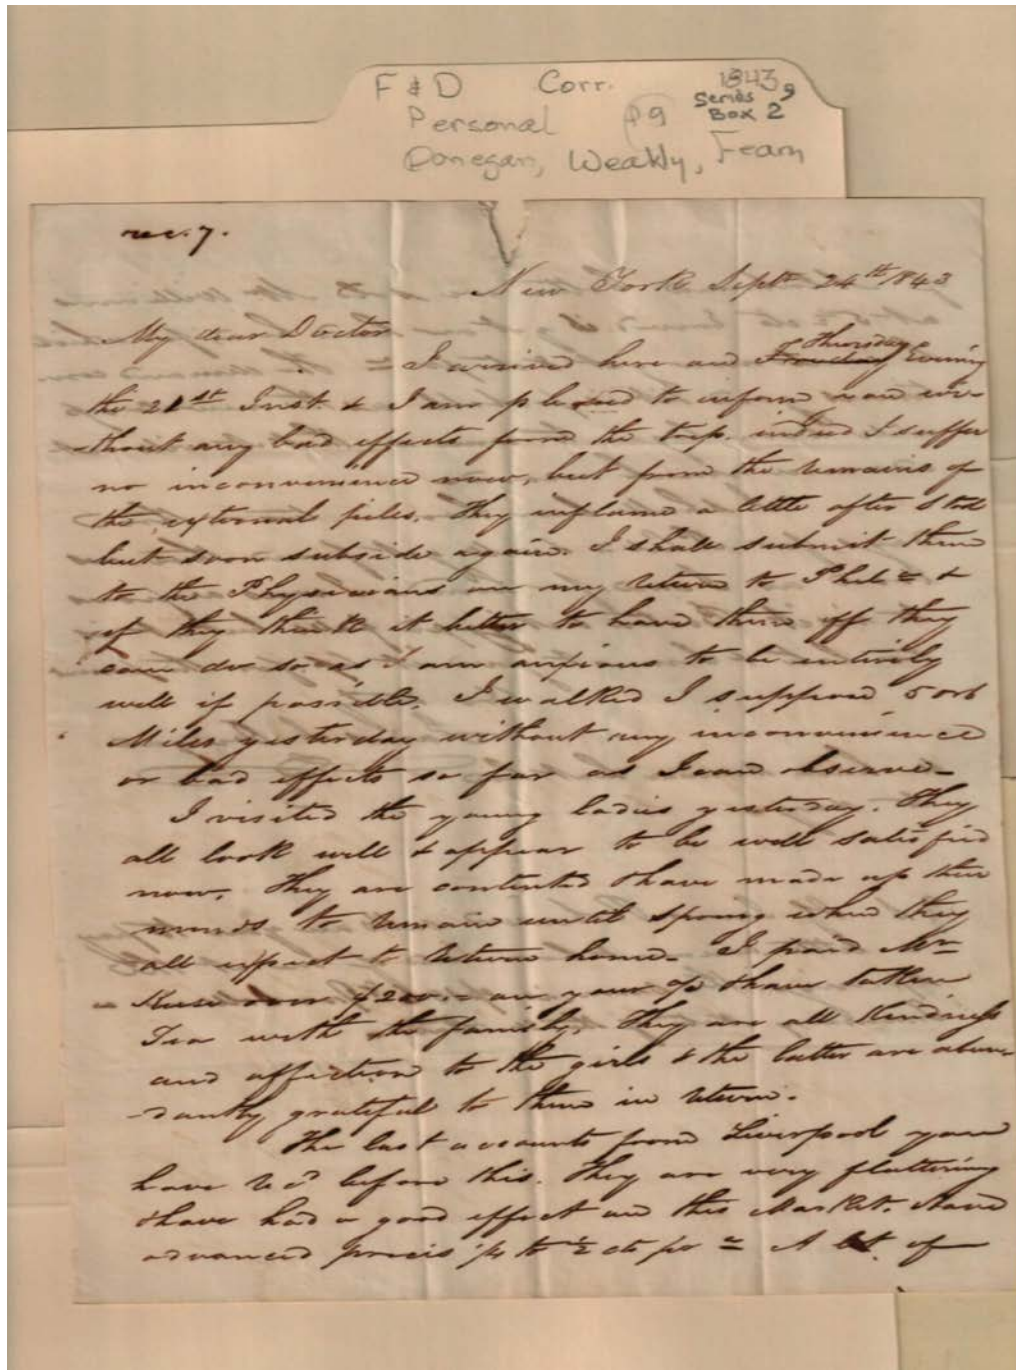 F & D Corr. 1843
Personal P9 Series 9
Box 2
Donegan, Weakly, Fearn
New York Septr 24th 1843
My dear Doctor
I arrived here on Thursday Evening
the 21st Inst. & I am pleased to inform you wi-
-thout any bad effects from the trip. indeed I suffer
no inconvenience now, but from the remains of
the external piles. They inflame a little after stool
but soon subside again. I shall submit them
to the Physicians on my return to Phila &
if they think it better to have them off they
can do so as I am anxious to be entirely
well if possible. I walked I suppose 5 or 6
Miles yesterday without any inconvenience
or bad effects so far as I can observe-
I visited the young ladies yesterday. They
all look well & appear to be well satisfied
now. They are contented & have made up their
minds to remain until spring when they
all expect to return home- I paid Mr
over $200.- on your a/c & have taken
Tea with the family. They are all Kindness
and affection to the girls & the latter are abun-
-dantly grateful to them in return.
The last accounts from Liverpool you
have recd before this. They are very flattering
& have had a good effect on this Market. Have
advanced prices 1/4 to 1/2 cts pr A lot of